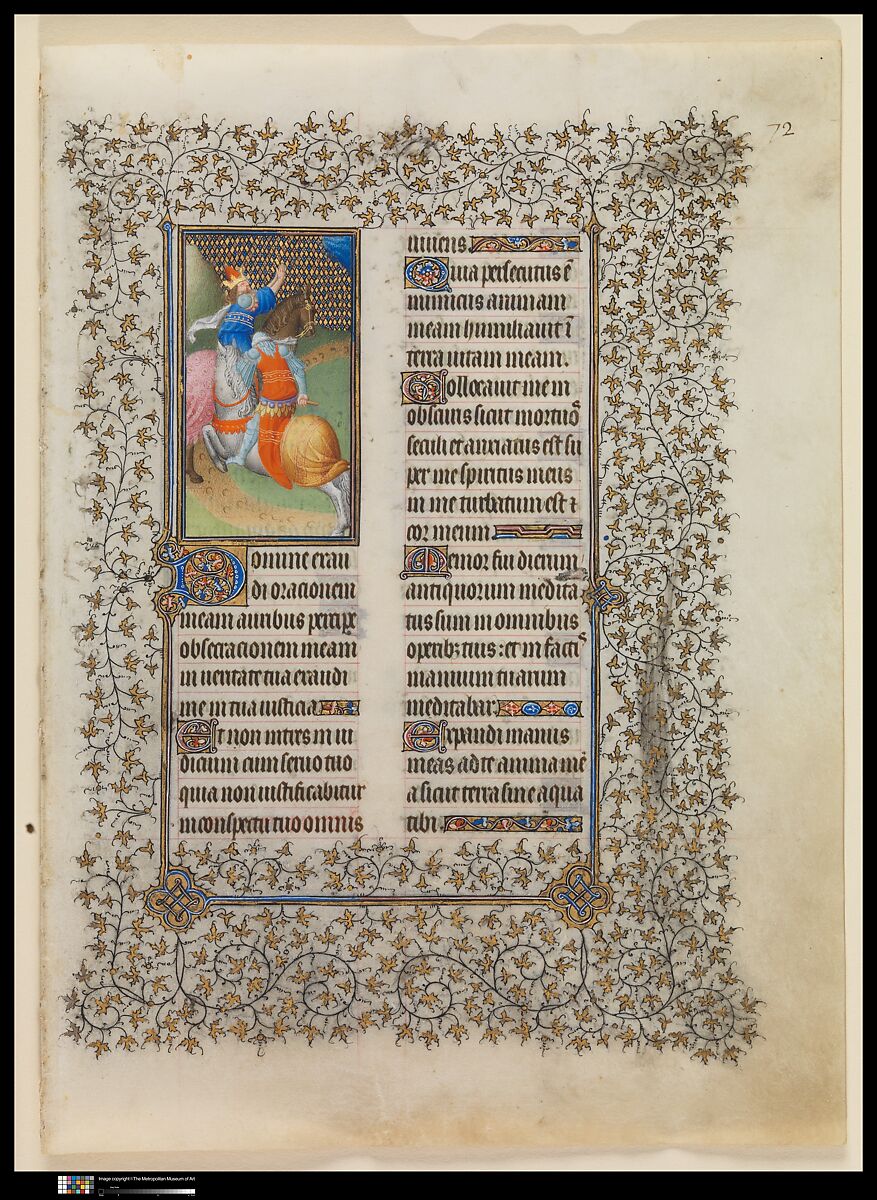 72
Domine exau
di oracionem
meam auribus percipe
obsecracionem meam
in ueritate tua exaudi
me in tua iusticia
Et non intres in iu
dicium cum seruo tuo
quia non iustificabitur
in conspectu tuo omnis
uiuens
Quia persecutus ē
inimicus animam
meam humiliauit ī
terra uitam meam.
Collocauit me in
obscuris sicut mortuoꝰ
seculi et anxiatus est su
per me spiritus meus
in me turbatum est ⁊
cor meum
Memor fui dierum
antiquorum medita
tus sum in omnibus
operibꝫ tuis : et in factiˢ
manuum tuarum
meditabar.
Expandi manus
meas ad te anima me
a sicut terra sine aqua
tibi
Image copyright ©The Metropolitan Museum of Art